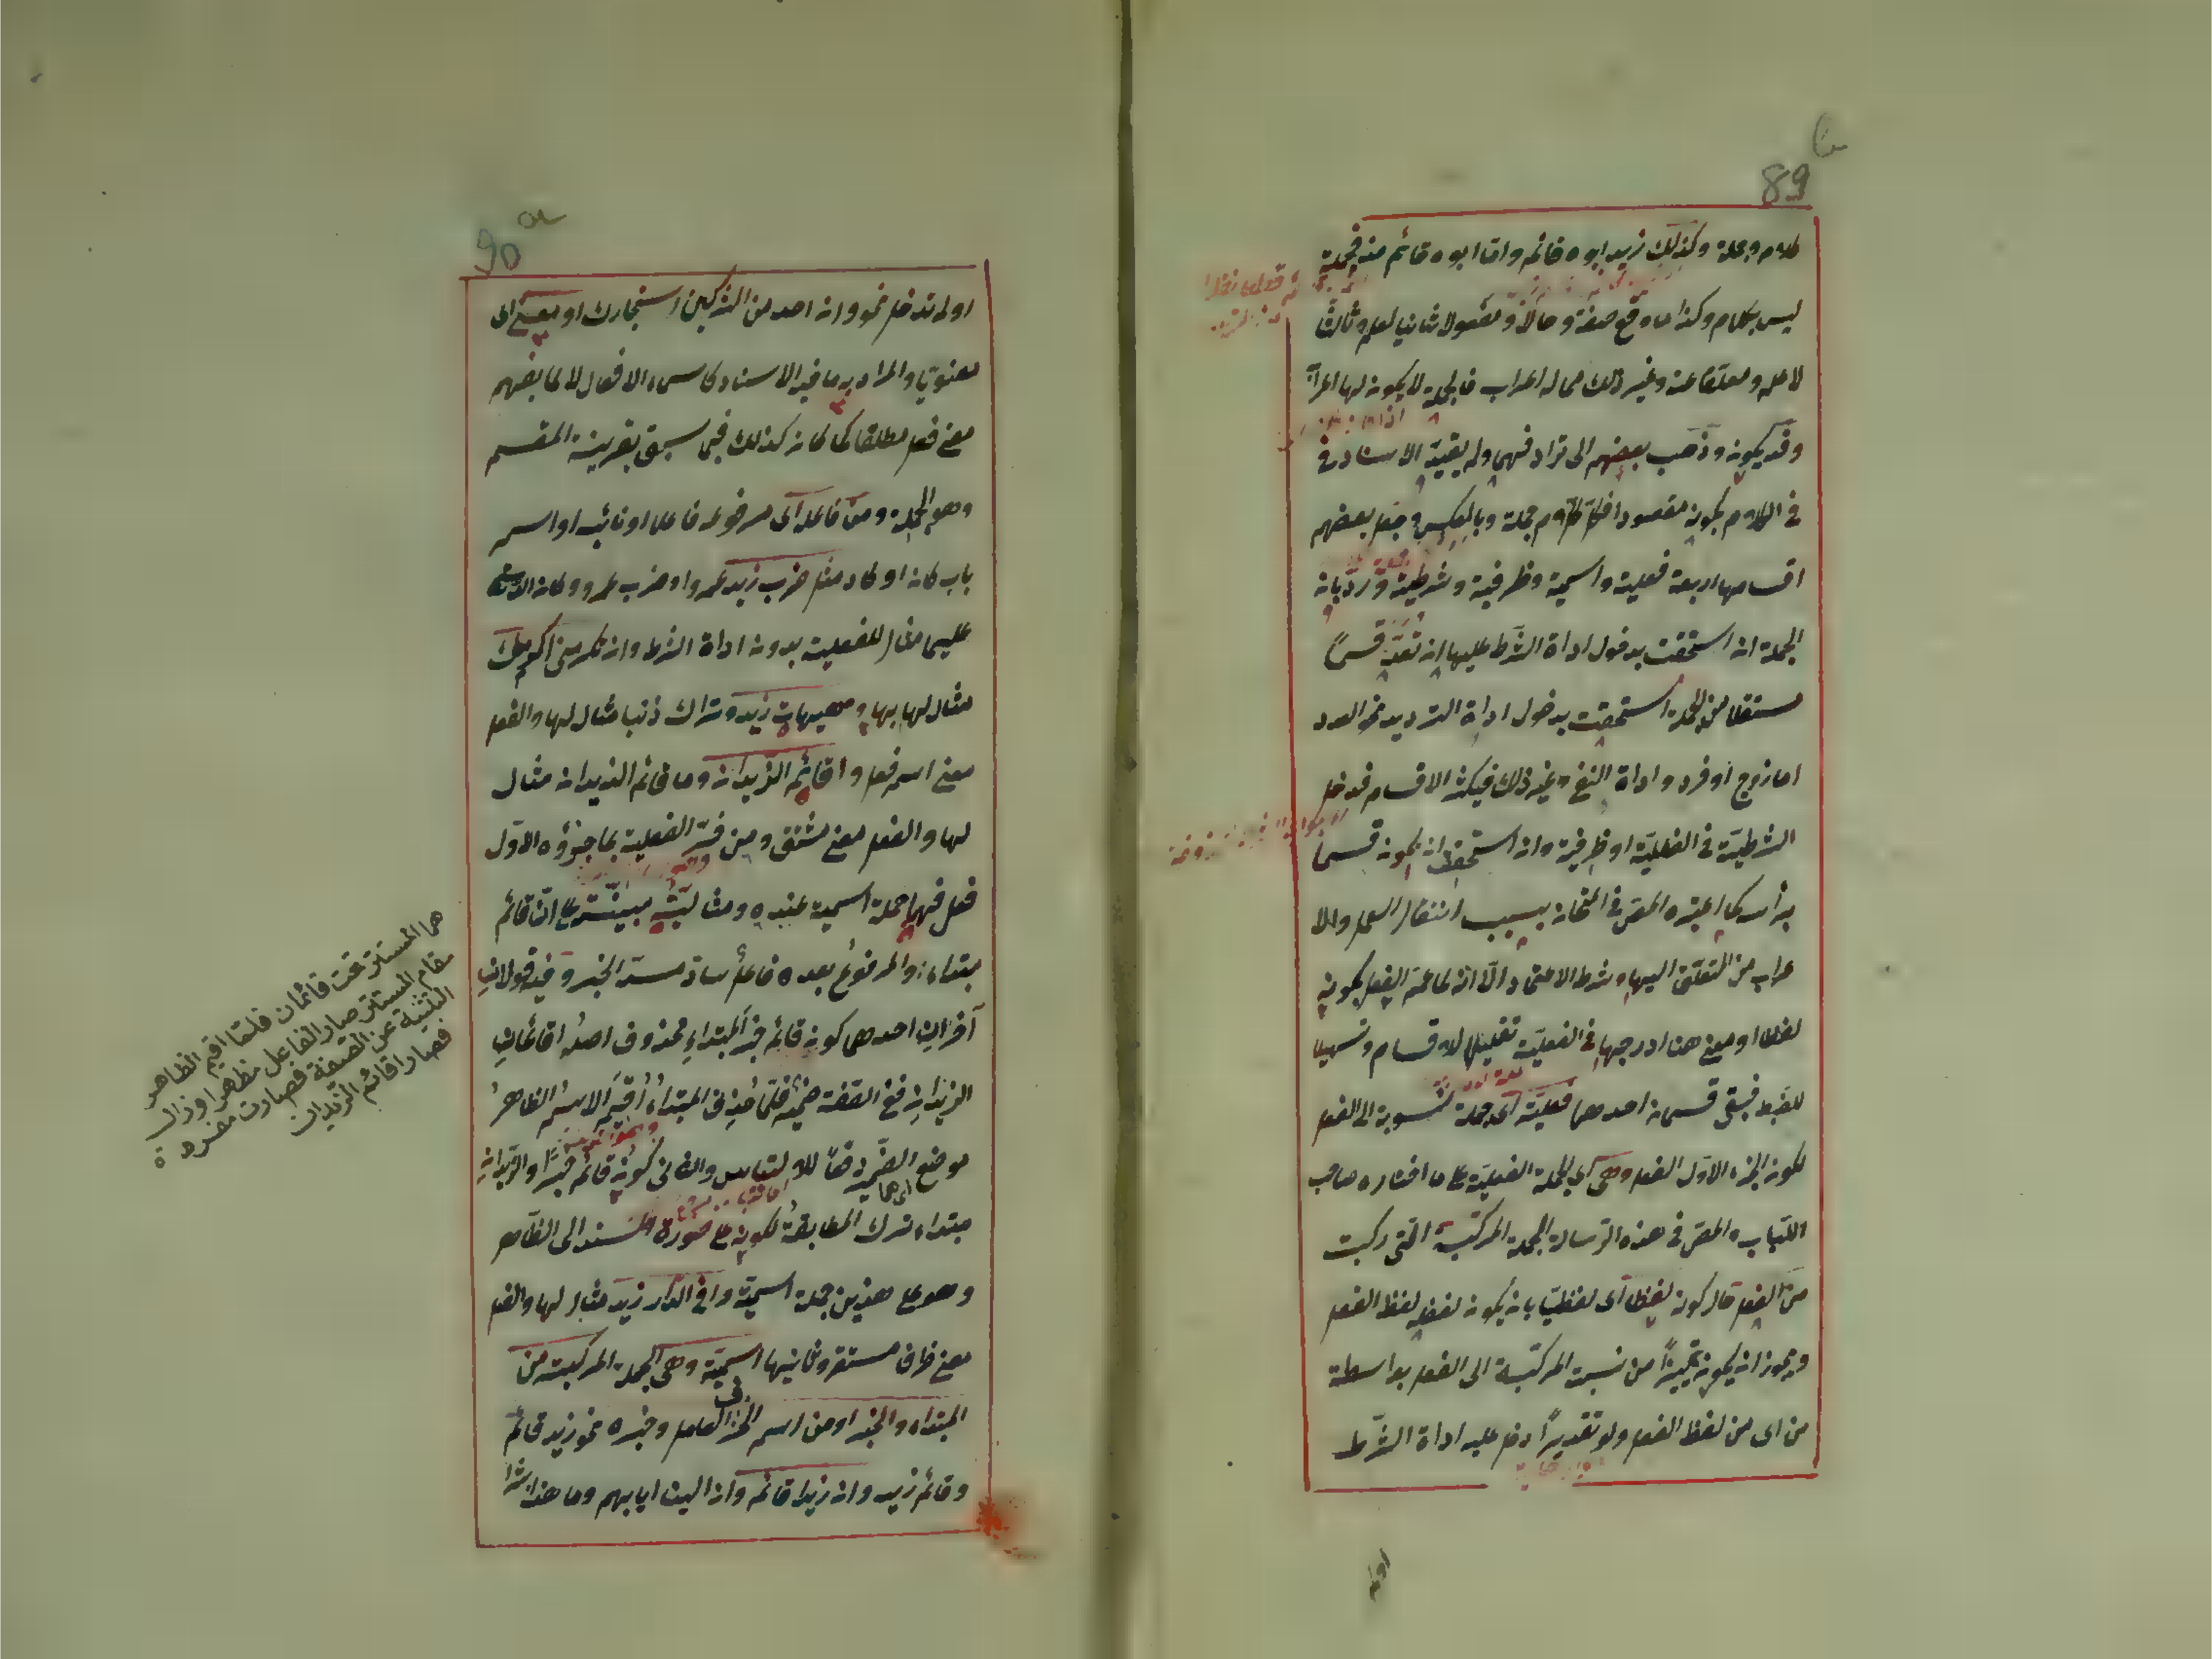 89
كلام وجملة وكذلك زيد ابوه قائم واما ابوه قائم منه فجملة
ليس بكلام وكذا ما وقع صفة وحالا ومفعولا ثانيا لعلم وثالثا
لاعلم ومعلقا عنه وغير ذلك مما له اعراب فالجملة لا يكون لها اعراب
وقد يكون وذهب بعضهم الى ترادفهما ولم يقيد الاسناد في
في الكلام بكونه مقصودا فكل كلام جملة وبالعكس وجعل بعضهم
اقسامها اربعة فعلية واسمية وظرفية وشرطية ورد بان
الجملة ان استحقت بدخول اداة الشرط عليها ان تعد قسما
مستقلا من الجملة استحقت بدخول اداة الترديد نحو العدد
اما زوج او فرد واداة النفي وغير ذلك فيكثر الاقسام فدخل
الشرطية في الفعلية او ظرفية وان استحق ان يكون قسما
برأسه كما اعتبره المص في امتحانه بسبب انتقال العمل والا
عراب من المتعلق اليها وشرط الاعتماد الا انه لما عمل الفعل لكونه
لفظا او معنى هنا ادرجها في الفعلية تقليلا للاقسام وتسهيلا
للضبط فبقي قسمان احدهما فعلية اى جملة منسوبة الى الفعل
لكون الجزء الاول الفعل وهى اى الجملة الفعلية على ما اختاره صاحب
اللباب والمص في هذه الرسالة الجملة المركبة التى ركبت
من الفعل قال كونه لفظا اى لفظيا بان يكون لفظه لفظ الفعل
ويجوز ان يكون تمييزا من نسبة المركبة الى الفعل بواسطة
من اى من لفظ الفعل ولو تقديرا دخل عليه اداة الشرط
اولم
90
اولم تدخل نحو وان احد من المشركين استجارك او معنى اى
معنويا والمراد به ما فيه الاسناد كاسماء الافعال لا ما يفهم
معنى فعل مطلقا كما كان كذلك فيما سبق بقرينة المقسم
وهو الجملة ومن فاعله اى مرفوعه فاعلا او نائبه او اسم
باب كان او كاد مثل ضرب زيد عمروا وضرب عمرو وكان الله
عليما مثال للفعلية بدون اداة الشرط وان تكرمنى اكرمك
مثال لها بها وهيهات زيد وتراك ذنبا مثال لها والفعل
معنى اسم فعل واقائم الزيدان وما قائم الزيدان مثال
لها والفعل معنى مشتق ومن فسر الفعلية بما جزؤه الاول
فعل فهما جملة اسمية عنده ومثاليته مبينة على ان قائم
مبتداء والمرفوع بعده فاعل ساد مسد الخبر وفيه قولان
آخران احدهما كون قائم خبر المبتداء محذوف اصله اقائمان
الزيدان ففي الصفة ضمير فلما حذف المبتداء اقيم الاسم الظاهر
موضع الضمير دفعا للالتباس والثانى كون قائم خبرا والزيدان
مبتداء ترك المطابقة لكونه على صورة المسند الى الظاهر
وهو على هذين جملة اسمية وافى الدار زيد مثال لها والفعل
معنى ظرف مستقر وثانيها اسمية وهى الجملة المركبة من
المبتداء والخبر او من اسم الحرف العامل وخبره نحو زيد قائم
وقائم زيد وان زيدا قائم وان الينا ايابهم وما هذا بشرا
هما المستتر تحت قائمان فلما اقيم الظاهر
مقام المستتر صار الفاعل مظهرا وزال
التثنية عن الصفة فصارت مفردة
فصار اقائم الزيدان